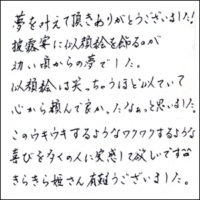 夢を叶えて頂きありがとうございました!
披露宴に似顔絵を飾るのが
幼い頃からの夢でした。
似顔絵は笑っちゃうほど似ていて
心から頼んで良かったなぁっと思いました。
このウキウキするようなワクワクするような
喜びを多くの人に実感して欲しいです
きらきら姫さん有難うございました。